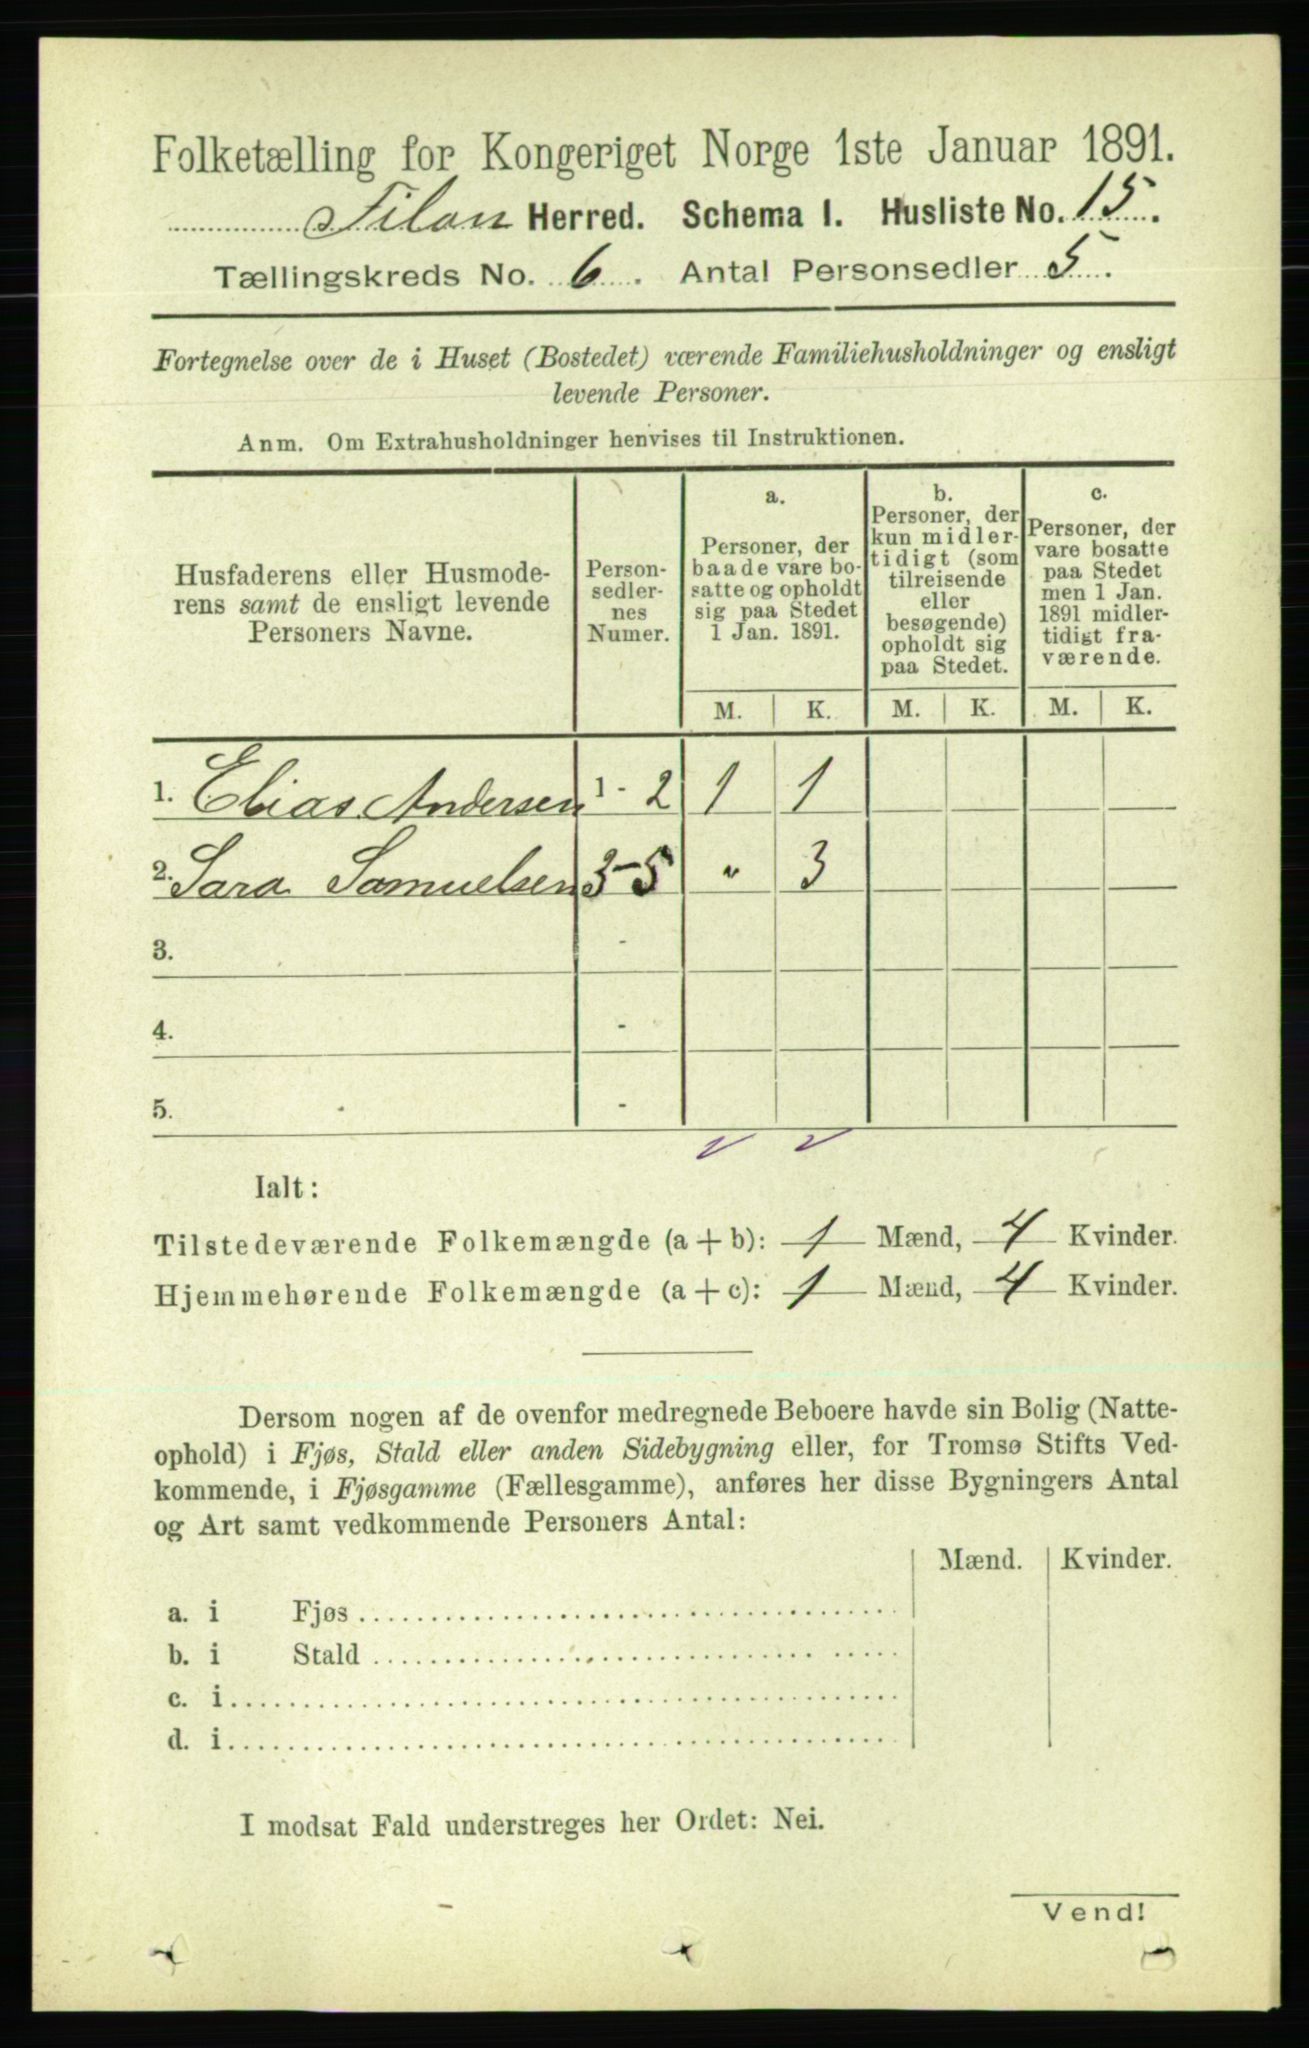 Folketælling for Kongeriget Norge 1ste Januar 1891.
Filan Herred. Schema 1. Husliste No. 15.
Tællingskreds No. 6. Antal Personsedler 5.
Fortegnelse over de i Huset (Bostedet) værende Familiehusholdninger og ensligt
levende Personer.
Anm. Om Extrahusholdninger henvises til Instruktionen.
Husfaderens eller Husmode-
rens samt de ensligt levende
Personers Navne.
Person-
sedler-
nes
Numer.
a.
Personer, der
baade vare bo-
satte og opholdt
sig paa Stedet
1 Jan. 1891.
b.
Personer, der
kun midler-
tidigt (som
tilreisende
eller
besøgende)
opholdt sig
paa Stedet.
c.
Personer, der
vare bosatte
paa Stedet
men 1 Jan.
1891 midler-
tidigt fra-
værende.
M. K. M. K. M. K.
1. Elias Andersen 1 - 2 1 1
2. Sara Samuelsen 3-5 " 3
3. -
4. -
5. -
Ialt:
Tilstedeværende Folkemængde (a + b): 1 Mænd, 4 Kvinder.
Hjemmehørende Folkemængde (a + c): 1 Mænd, 4 Kvinder.
Dersom nogen af de ovenfor medregnede Beboere havde sin Bolig (Natte-
ophold) i Fjøs, Stald eller anden Sidebygning eller, for Tromsø Stifts Ved-
kommende, i Fjøsgamme (Fællesgamme), anføres her disse Bygningers Antal
og Art samt vedkommende Personers Antal:
Mænd. Kvinder.
a. i Fjøs
b. i Stald
c. i
d. i
I modsat Fald understreges her Ordet: Nei.
Vend!